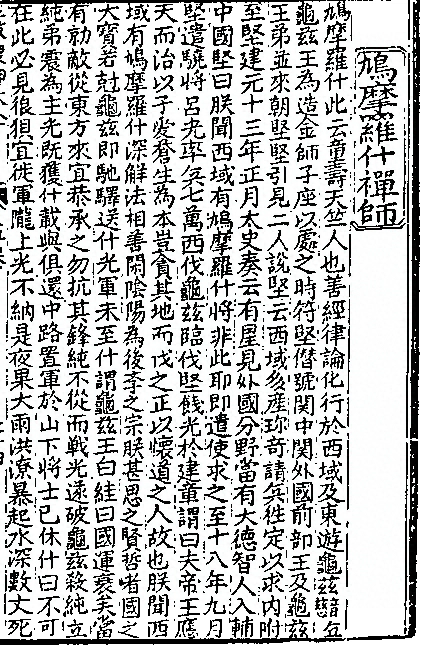 鳩摩羅什禪師
鳩摩羅什此云童壽天竺人也善經律論化行於西域及東遊龜兹龜兹
龜兹王為造金師子座以處之時符堅僣號関中関外國前部王及龜兹
王弟並來朝堅堅引見二人說堅云西域多產珎奇請兵徃定以求内附
至堅建元十三年正月太史奏云有星見外國分野當有大德智人入輔
中國堅曰朕聞西域有鳩摩羅什將非此耶即遣使求之至十八年九月
堅遣驍將吕光率兵七萬西伐龜兹臨伐堅餞光於建章謂曰夫帝王應
天而治以子愛蒼生為本豈貪其地而伐之正以懷道之人故也朕聞西
域有鳩摩羅什深解法相善閑陰陽為後學之宗朕甚思之賢哲者國之
大寶若尅龜兹即馳驛送什光軍未至什謂龜兹王白純曰國運衰矣當
有勍敵從東方來宜恭承之勿抗其鋒純不從而戰光遂破龜兹殺純立
純弟震為主光既獲什載與俱還中路置軍於山下將士已休什曰不可
在此必見狼狽宜徙軍隴上光不納是夜果大雨洪潦暴起水深數丈死